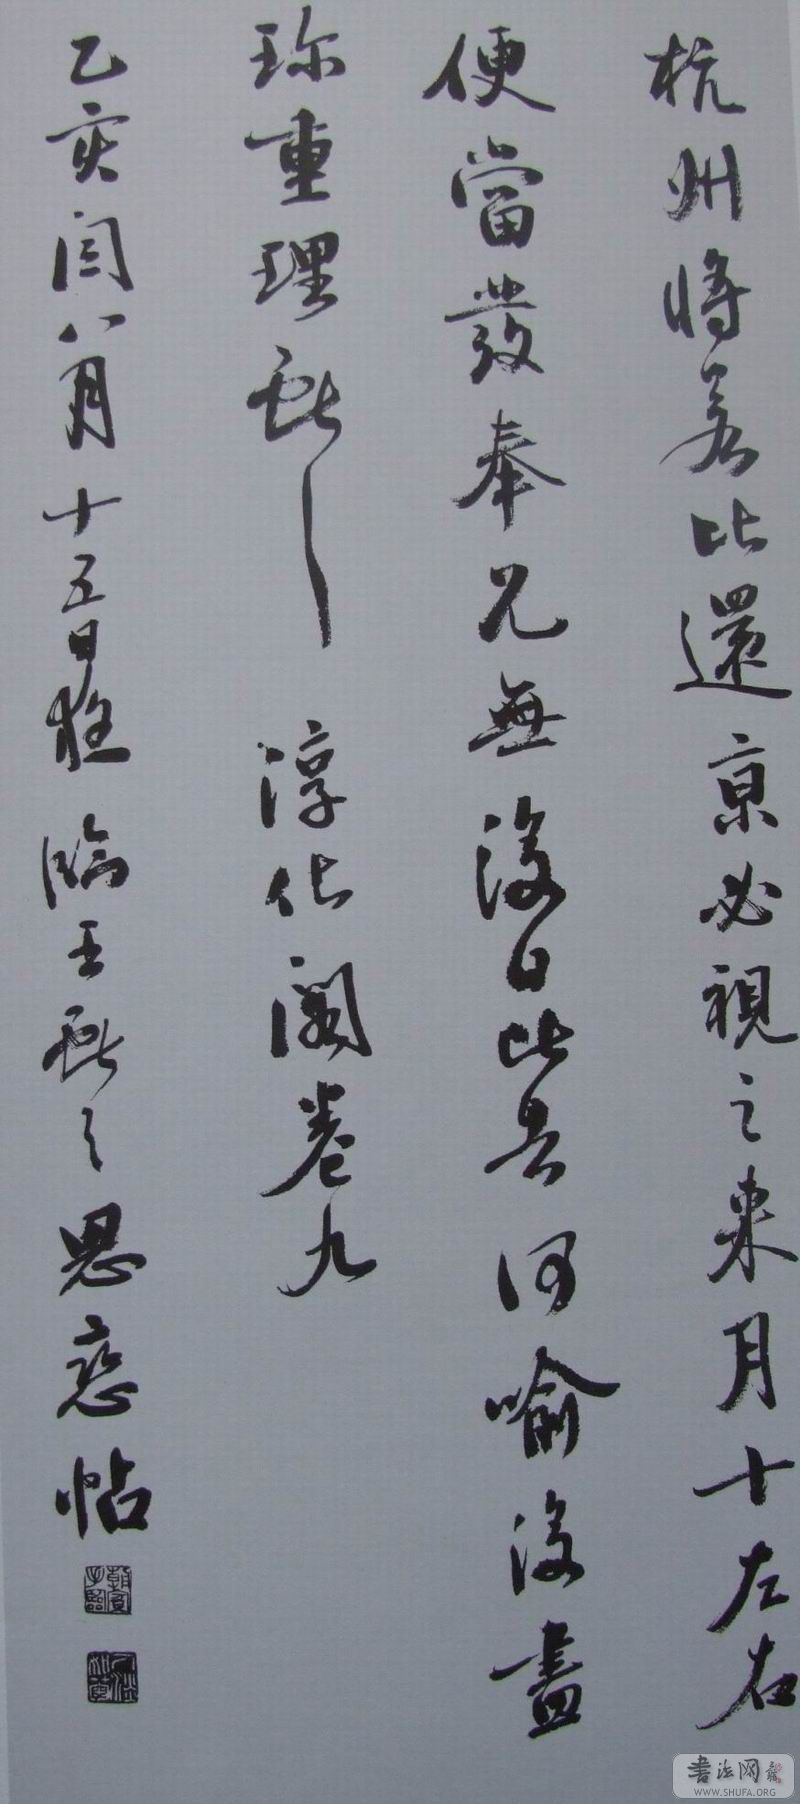 杭州將若比還京必視之來月十左右
便當發奉兄無復日比告何喻復盡
珍重理献之 淳化閣卷九
乙亥閏八月十五日 臨王献之思戀帖
書法网
WWW.SHUFA.ORG